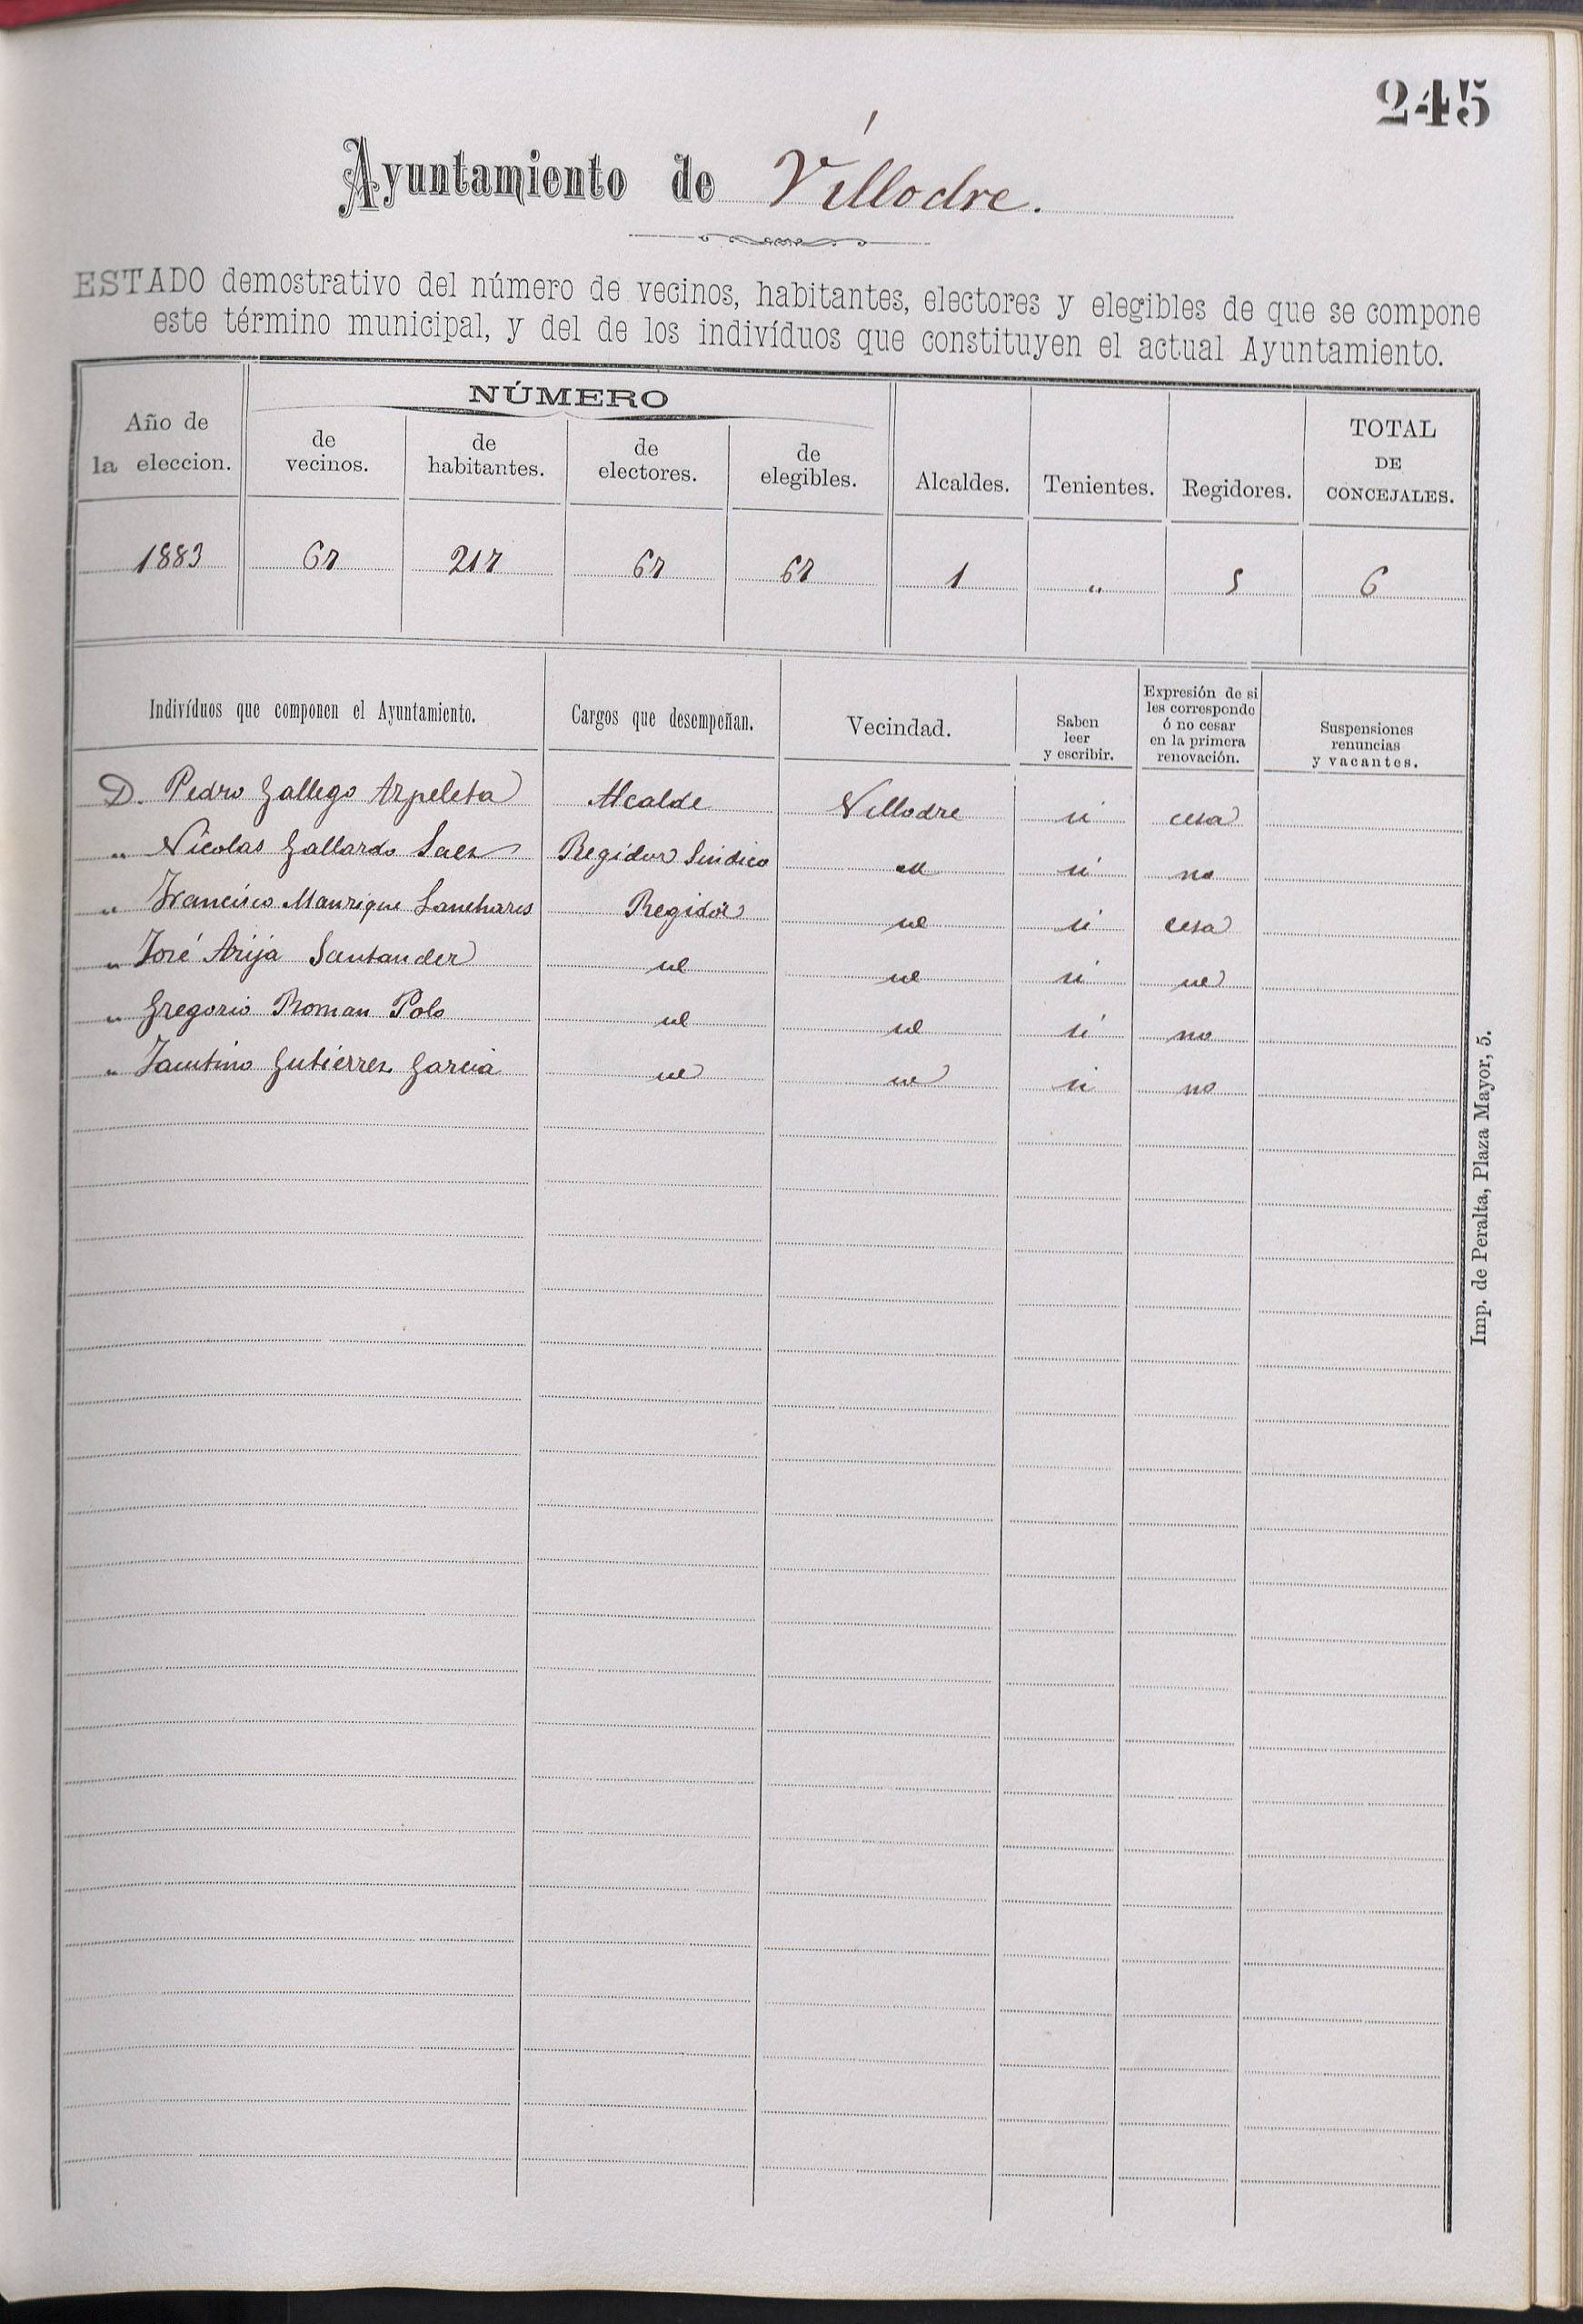 245
Ayuntamiento de Villodre.
ESTADO demostrativo del número de vecinos, habitantes, electores y elegibles de que se compone
este término municipal, y del de los indivíduos que constituyen el actual Ayuntamiento.
NÚMERO
Año de
la eleccion.
de
vecinos.
de
habitantes.
de
electores.
de
elegibles.
Alcaldes.
Tenientes.
Regidores.
TOTAL
DE
CONCEJALES.
1883 67 217 67 67 1 " 5 6
Indivíduos que componen el Ayuntamiento.
Cargos que desempeñan.
Vecindad.
Saben
leer
y escribir.
Expresión de si
les corresponde
ó no cesar
en la primera
renovación.
Suspensiones
renuncias
y vacantes.
D. Pedro Gallego Arpeleta Alcalde Villodre si cesa
" Nicolas Gallardo Saez Regidor Sindico id si no
" Francisco Manrique Lanchares Regidor id si cesa
" José Arija Santander id id si id
" Gregorio Roman Polo id id si no
" Faustino Gutierrez Garcia id id si no
Imp. de Peralta, Plaza Mayor, 5.